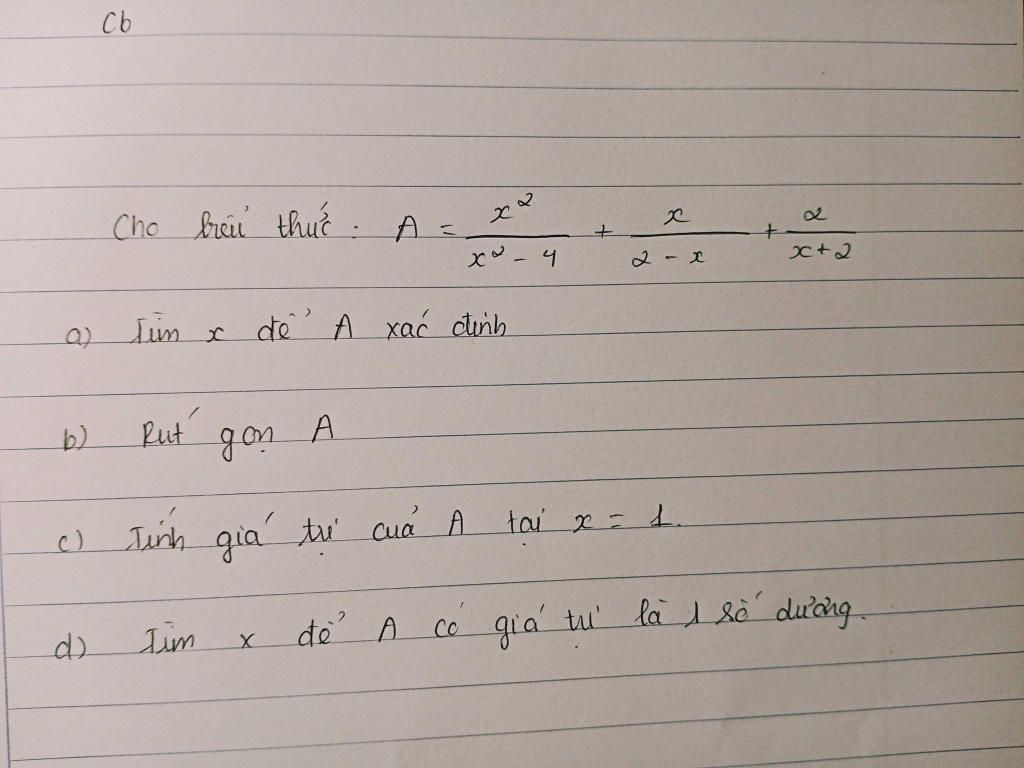 Cb
Cho biểu thức: A = x²/(x² - 4) + x/(2 - x) + 2/(x + 2)
a) Tìm x để A xác định
b) Rút gọn A
c) Tính giá trị của A tại x = 1.
d) Tìm x để A có giá trị là 1 số dương.